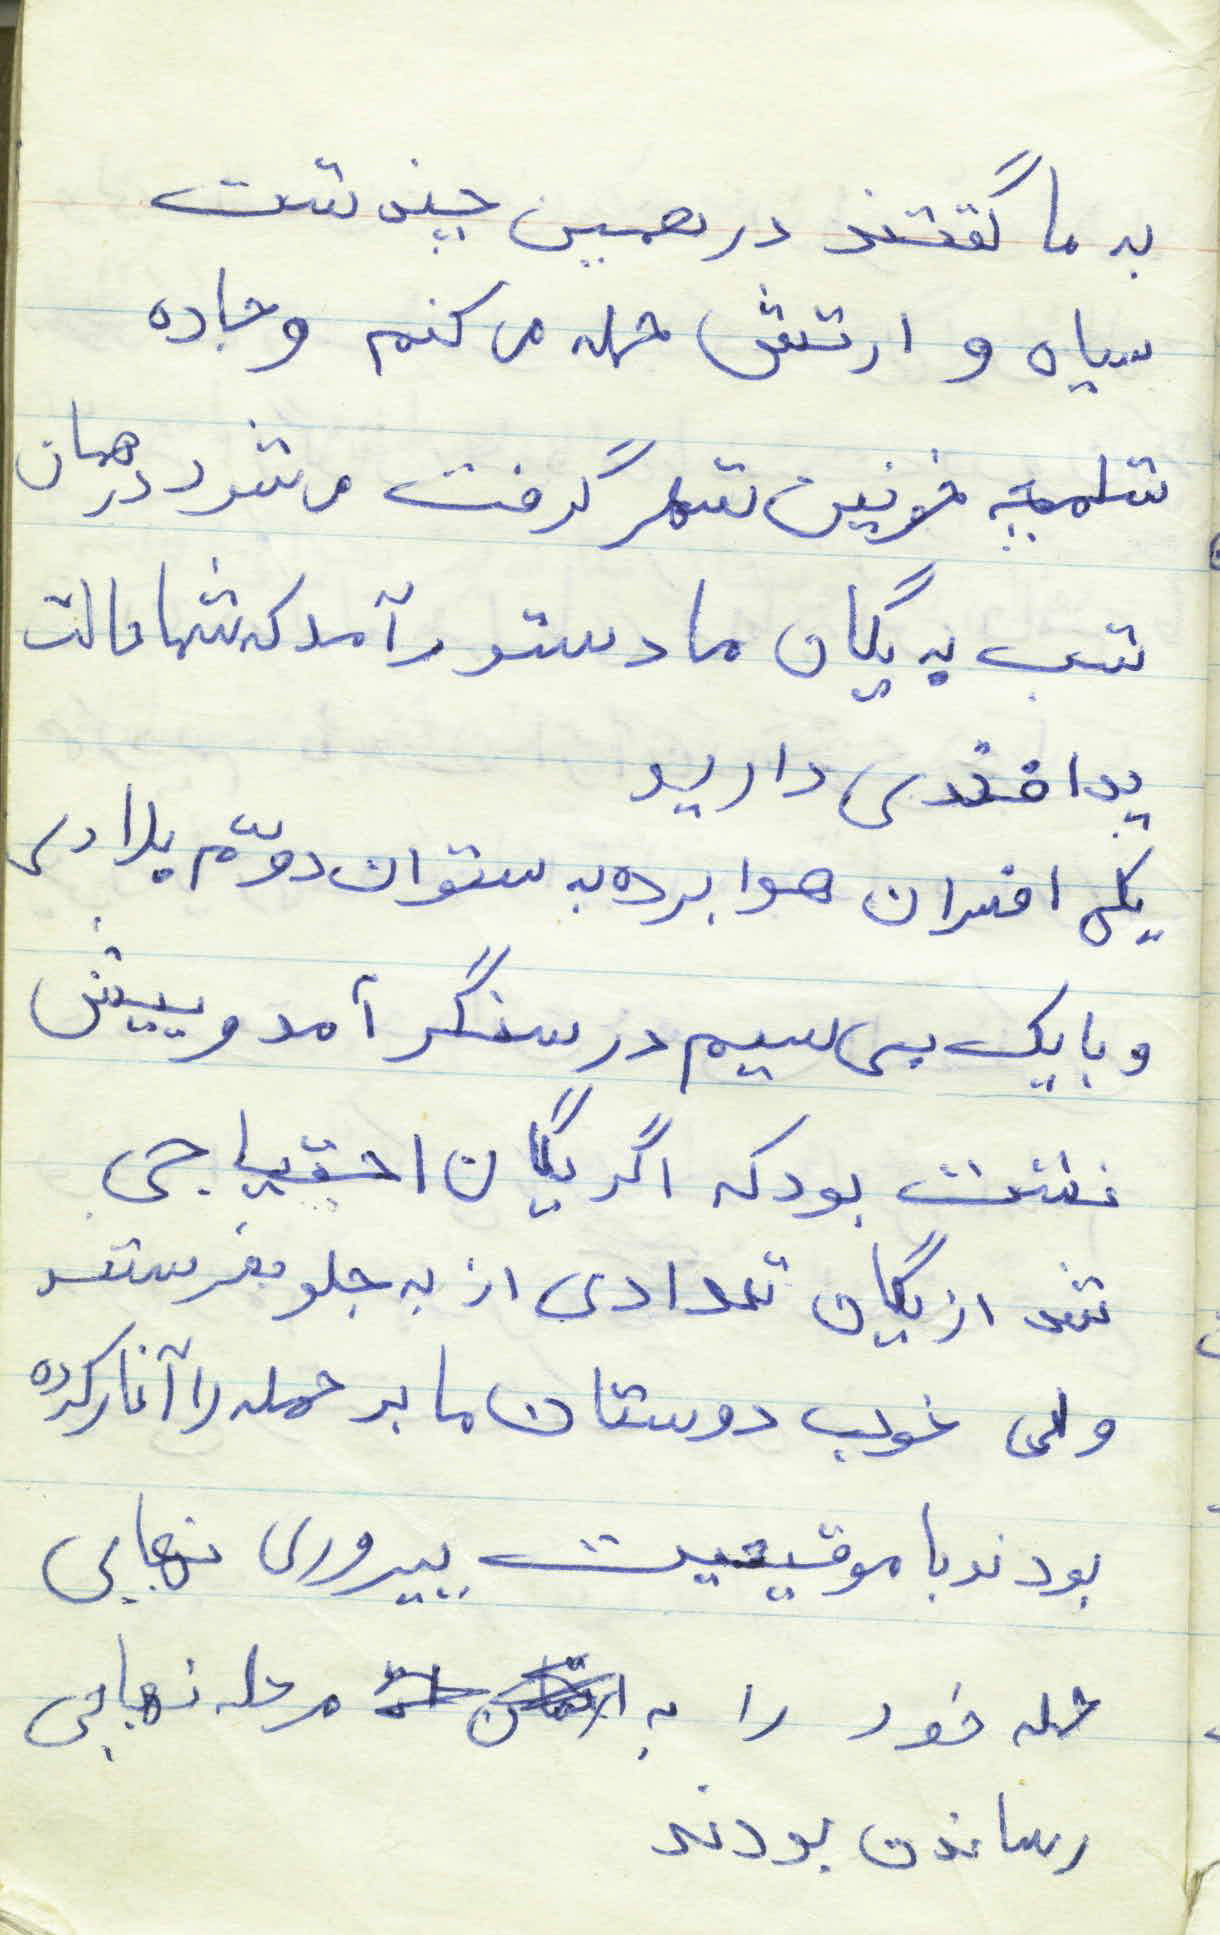 به ما گفتند در همین چند شب
سپاه و ارتش حمله می کنم و جاده
شلمچه خونین شهر گرفت می شود در همان
شب به یگان ما دستور آمد که شما حالت
پدافندی دارید
یکی افسران هوابرد به ستوان دوّم
و با یک بی سیم در سنگر آمد و پیش
نشت بود که اگر یگان احتیاجی
شد از یگان تعدادی از به جلو بفرستد
ولی خوب دوستان ما بر حمله را آغاز کرده
بودند با موقیعیت پیروزی نهایی
حمله خود را به مرحله نهایی
رساندن بودند